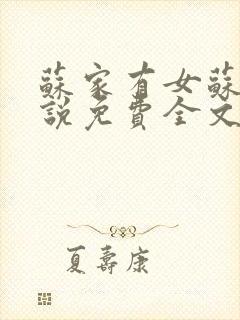 蘇家有女蘇
說免費全文
夏壽康